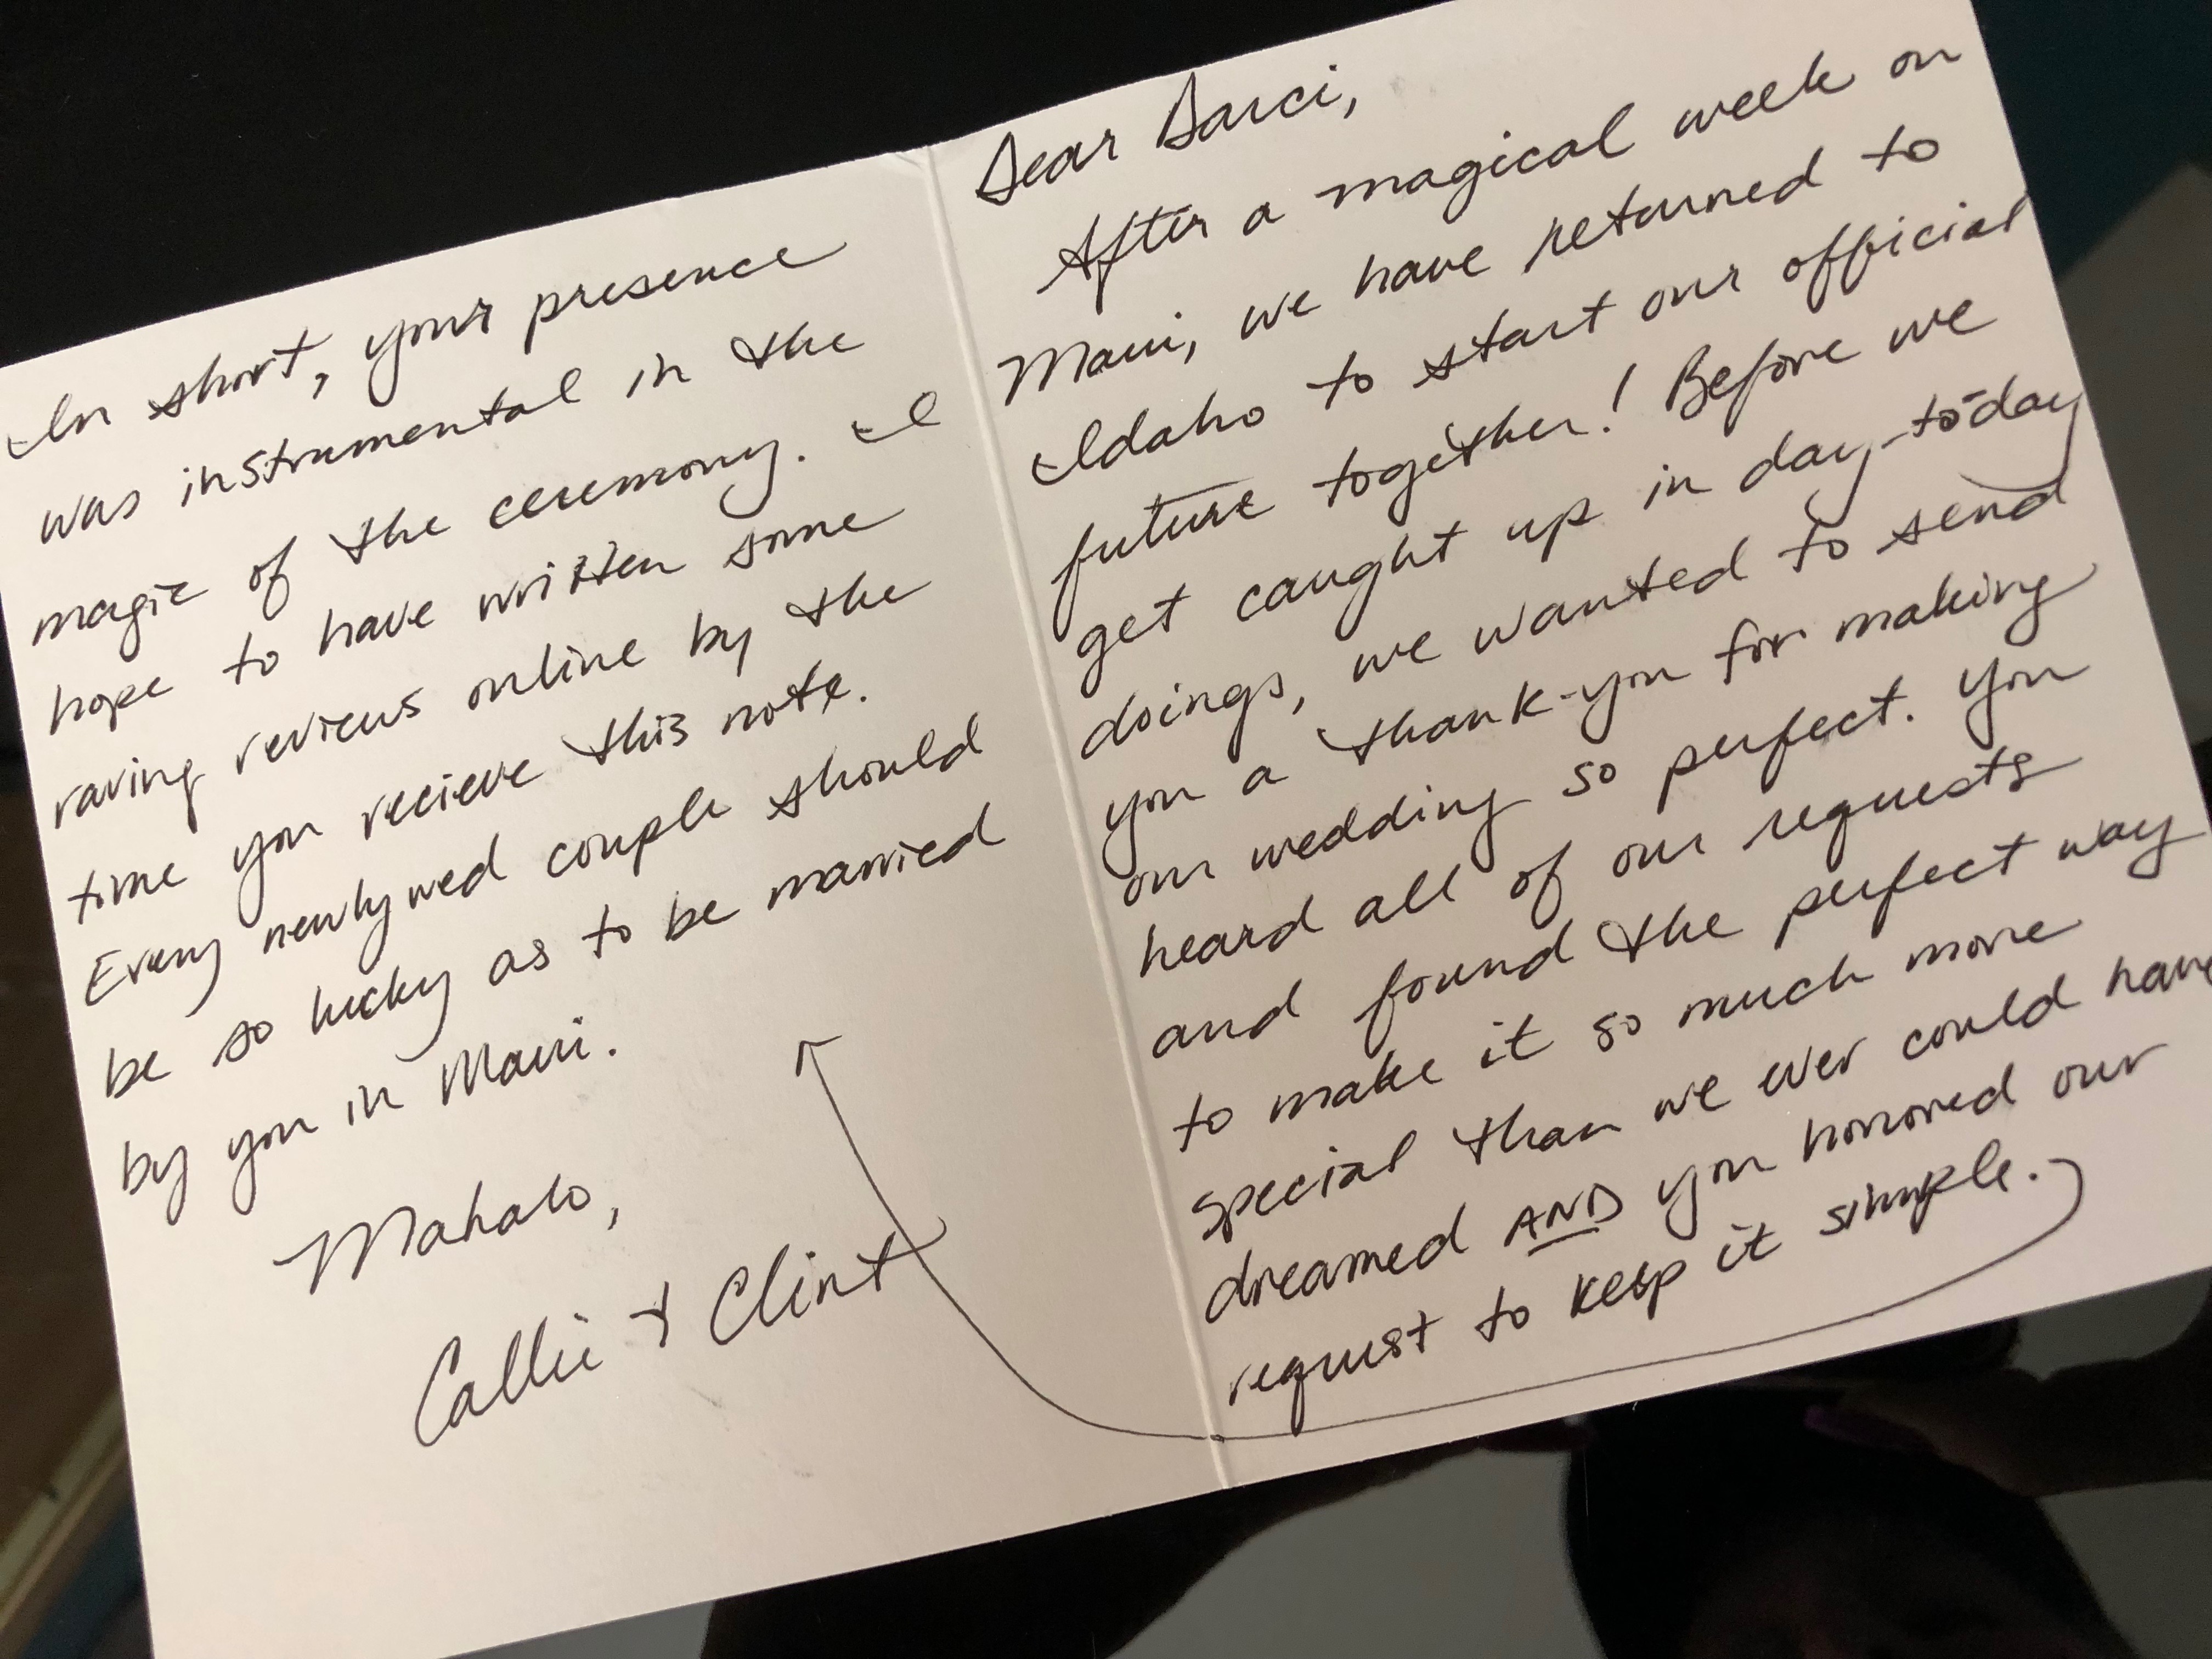 Dear Darci,
After a magical week on
Maui, we have returned to
Idaho to start our official
future together! Before we
get caught up in day-to-day
doings, we wanted to send
you a thank-you for making
our wedding so perfect. You
heard all of our requests
and found the perfect way
to make it so much more
special than we ever could have
dreamed AND you honored our
request to keep it simple.
In short, your presence
was instrumental in the
magic of the ceremony. I
hope to have written some
raving reviews online by the
time you recieve this note.
Every newlywed couple should
be so lucky as to be married
by you in Maui.
Mahalo,
Callie + Clint